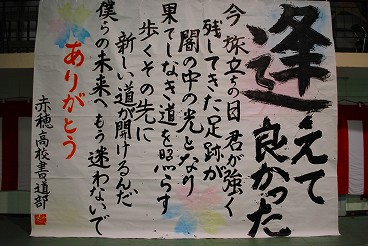 逢えて
良かった
今旅立ちの日 君が強く
残してきた足跡が
闇の中の光となり
果てしなき道を照らす
歩くその先に
新しい道が開けるんだ
僕らの未来へもう迷わないで
ありがとう
赤穂高校書道部